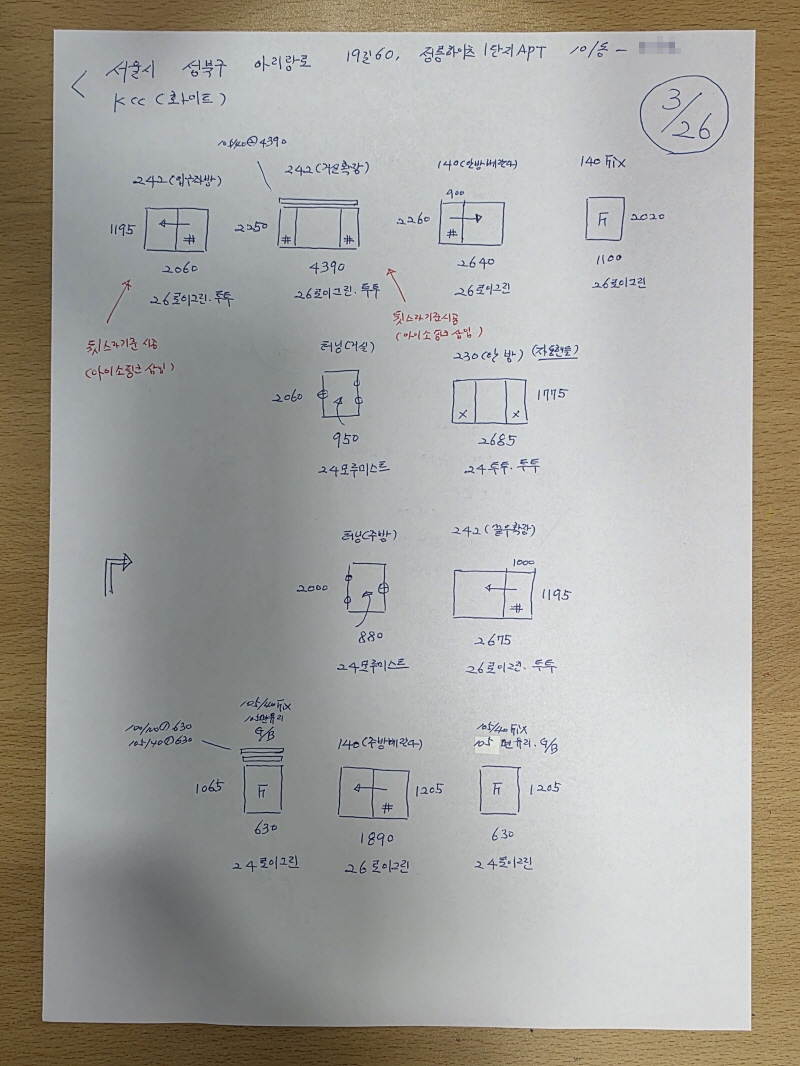 < 서울시 성북구 아리랑로 19길60, 정릉하이츠 1단지APT 101동 -
KCC (화이트)
3/26
105/40 @ 4390
242 (입구좌방)
1195
#
2060
26로이그린. 투투
242 (거실확장)
2250
# #
4390
26로이그린. 투투
140 (안방베란다)
900
2260
#
2640
26로이그린
140 Fix
F
2020
1100
26로이그린
기준시공
(아이소핑크 삽입)
기준시공
(아이소핑크 삽입)
터닝 (거실)
2060
950
24모루미스트
230 (안방)
x x
1775
2685
24투투. 투투
터닝 (주방)
2000
880
24모루미스트
242 (끝우확장)
1000
#
1195
2675
26로이그린. 투투
630
105/40 ① 630
105/40 Fix
G/B
1065
F
630
24로이그린
140 (주방베란다)
#
1205
1890
26로이그린
105/40 Fix
105 판유리. G/B
F
1205
630
24로이그린